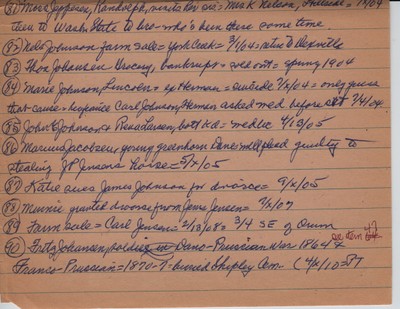 81) Moves Jeppesen, Randolph, visits for sis = Mrs K Nelson,
then to Wash State to bro - who's been there some time
82) Nels Johnson farm sale = York Creek = 3/04
83) Thos Johansen Grocery, bankrupt = sold out = spring 1904
84) Marie Johnson, Lincoln = ex Herman = suicide 7/2/04 = only guess
that cause = Carl Johnson, Herman asked med before 7/4/04
85) John C Johnson & Rosa Larsen, both = 4/13/05
86) Marcus Jacobsen, young greenhorn Dane will plead guilty to
stealing JP Jensens horse = 5/x/05
87) Katie sues James Johnson for divorce = 9/x/05
88) Minnie granted divorce from Jens Jensen = 7/x/07
89) Farm sale = Carl Jensen = 2/13/08 = 3/4 SE of Orum
90) Fritz Johansen, soldier in Dano-Prussian War 1864 &
Franco-Prussian = 1870-71 - buried Shipley Cem - (4/x/10 = 87